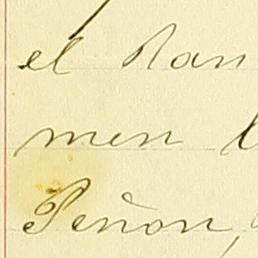 el Ran
men l
Peñon,